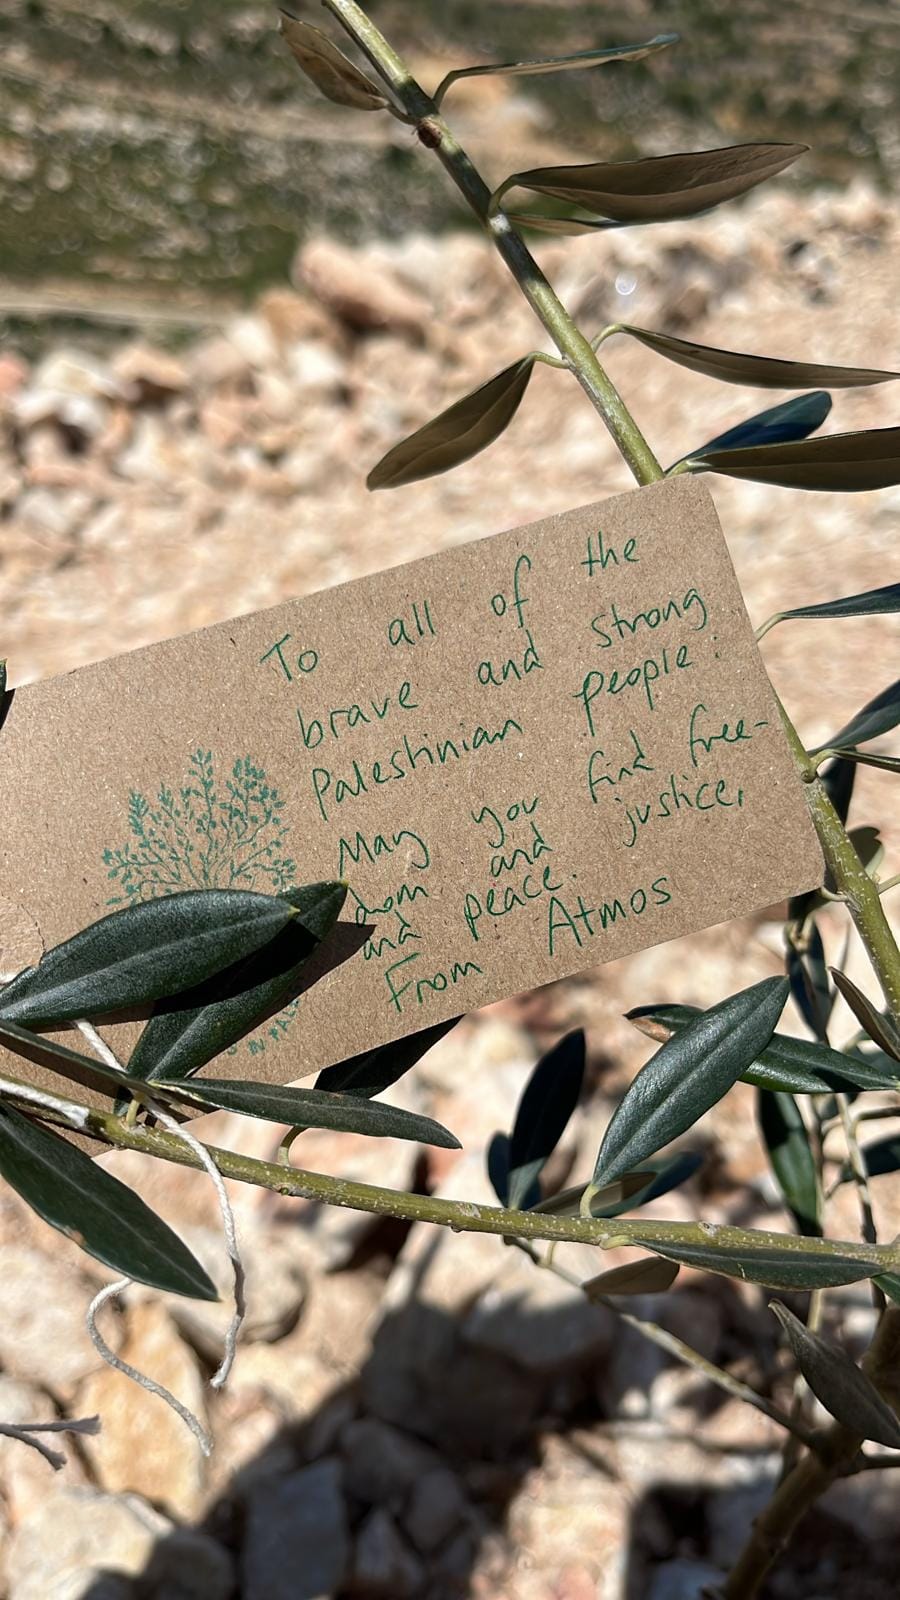 To all of the
brave and strong
Palestinian people:
May you find free-
dom and justice,
and peace.
From Atmos
IN PALES